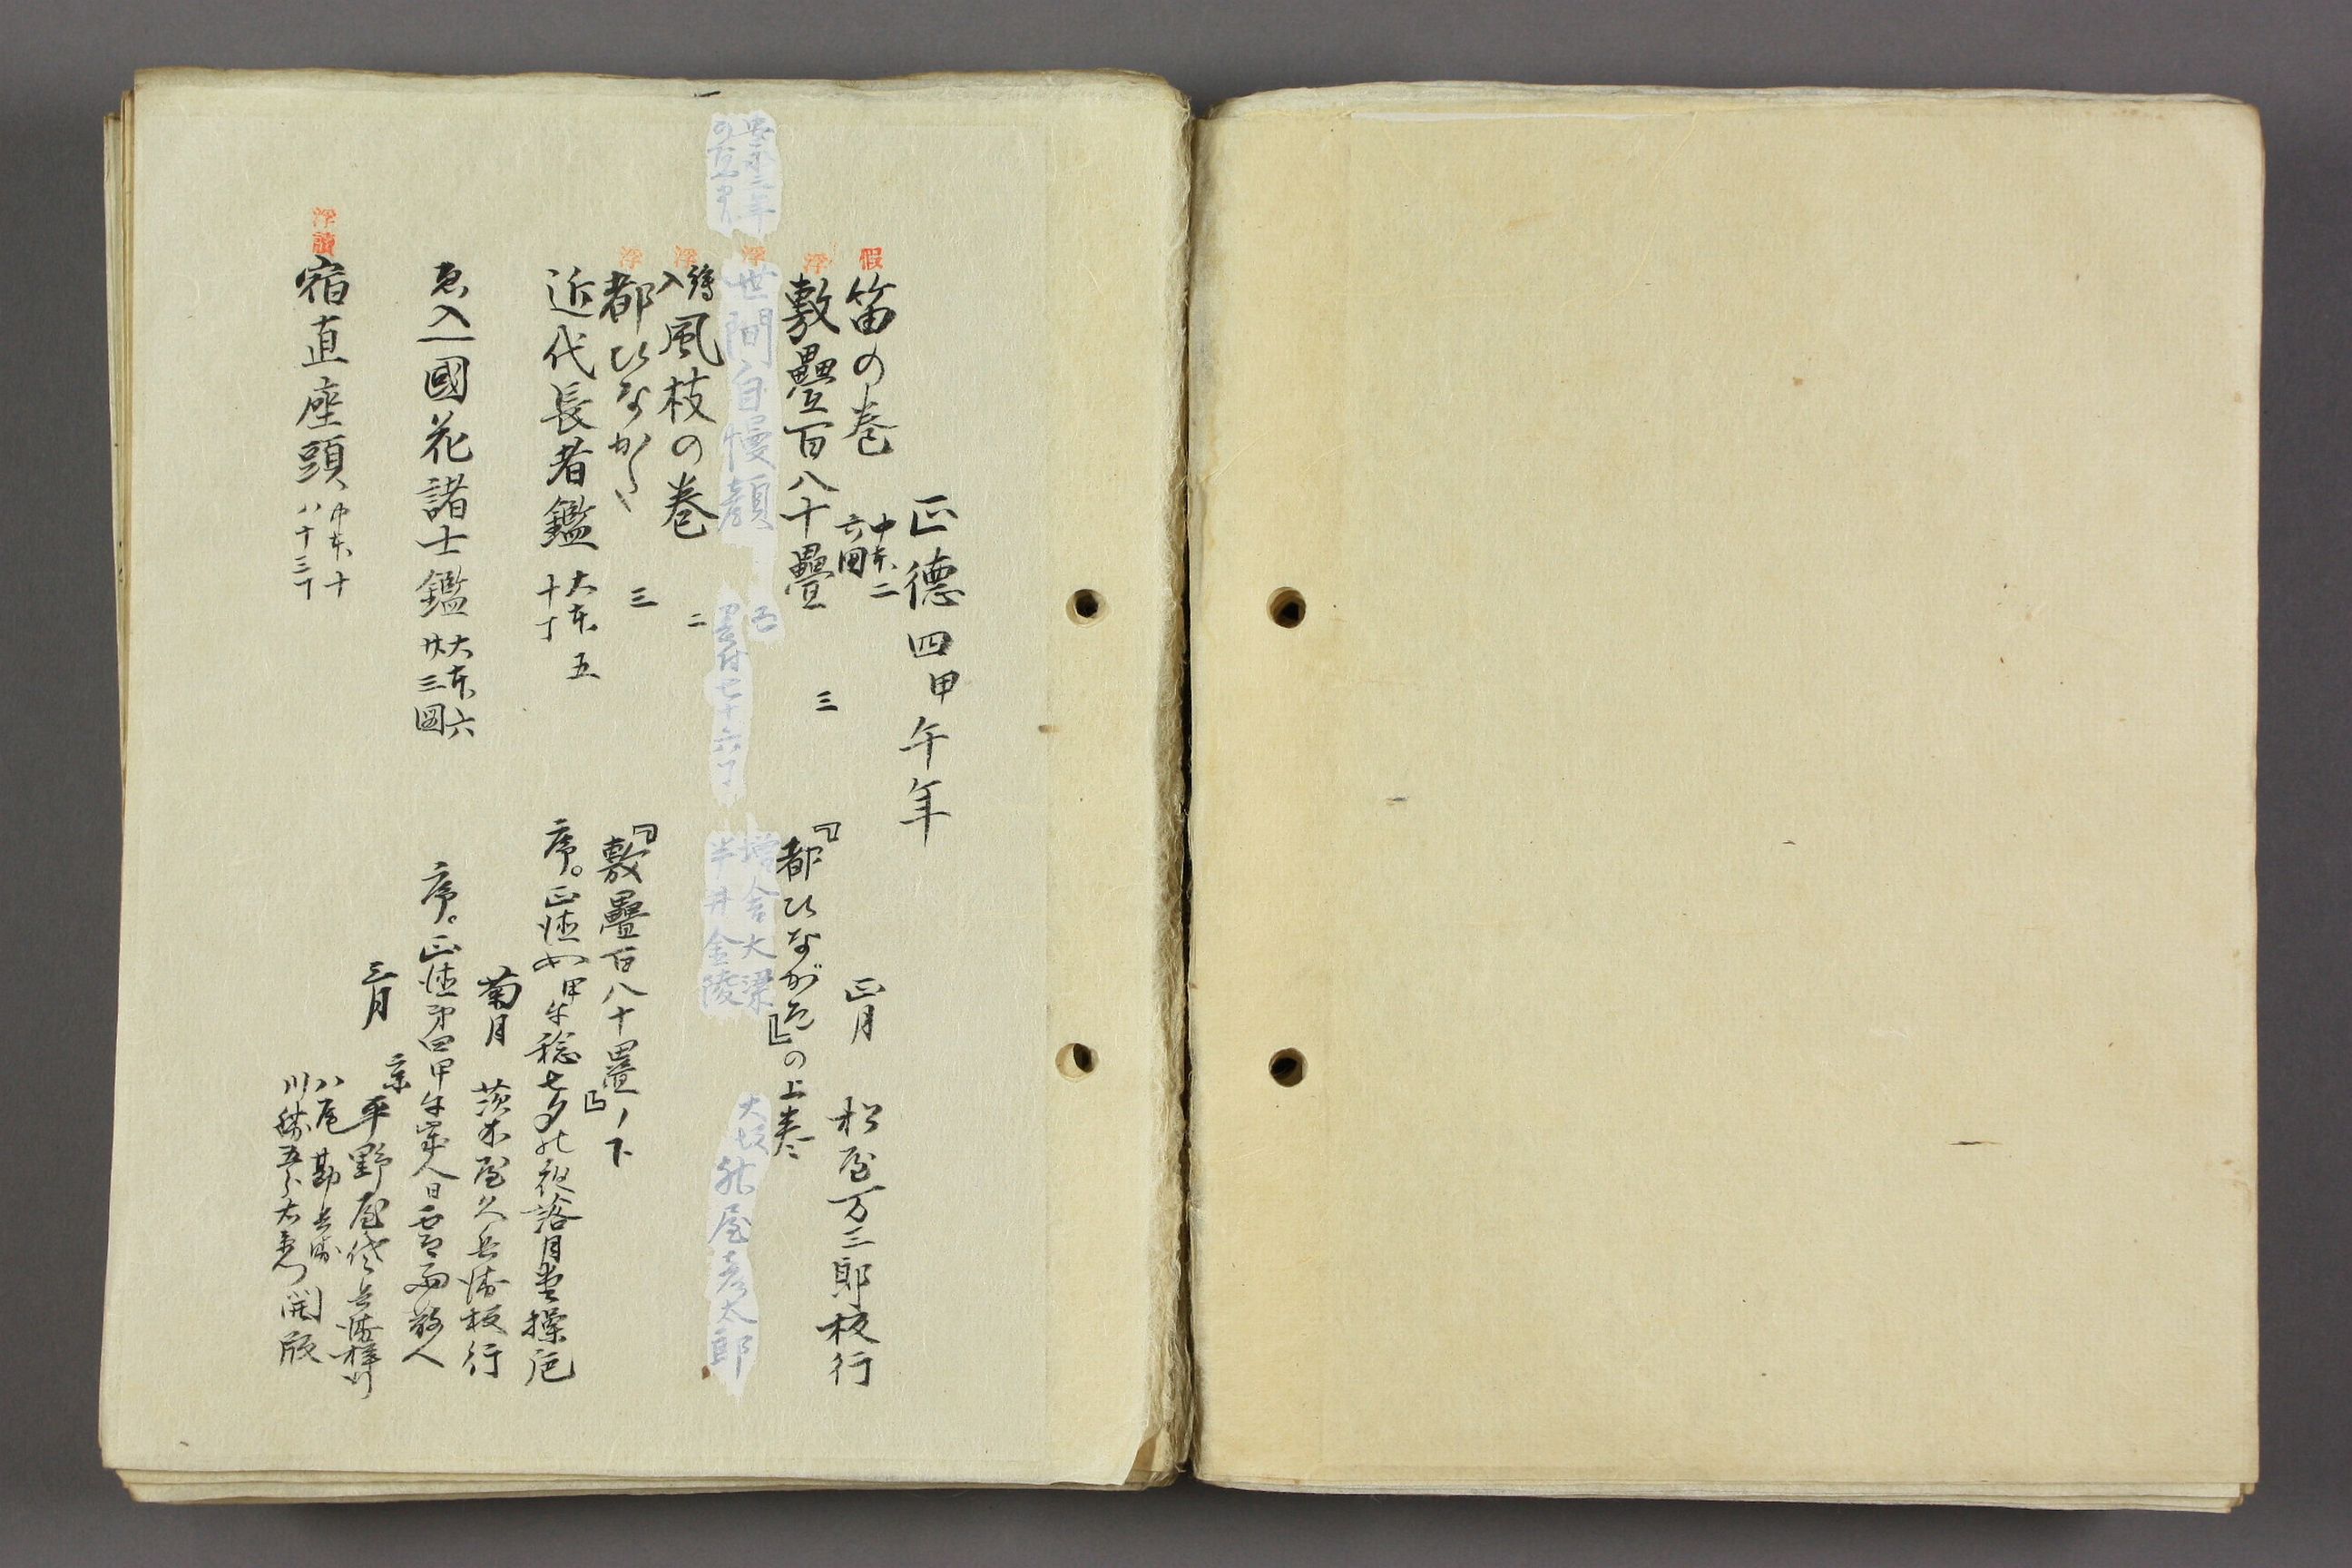 正德四甲午年
假
笛の巻 中本二 六図 正月 松屋万三郎板行
浮
敷疊百八十疊 三 『都ひながた』の上巻
浮
世間自慢顔 五 墨付七十六丁 増舎大梁 半井金陵 大坂 屋彦太郎
浮
繪入 風枝の巻 二
浮
都ひなかた 三 『敷疊百八十疊』ノ下
近代長者鑑 大本五 十丁 序。正徳四甲午稔七夕の夜落月堂操巵
菊月 茨木屋久兵衛板行
ゑ入 國花諸士鑑 大本六 廿三図 序。正徳第四甲午歳人日 散人
三月 京 平野屋 兵衛梓行
浮
宿直座頭 中本十 八十三丁 八尾勘兵衛
川勝五郎右衛門 開版